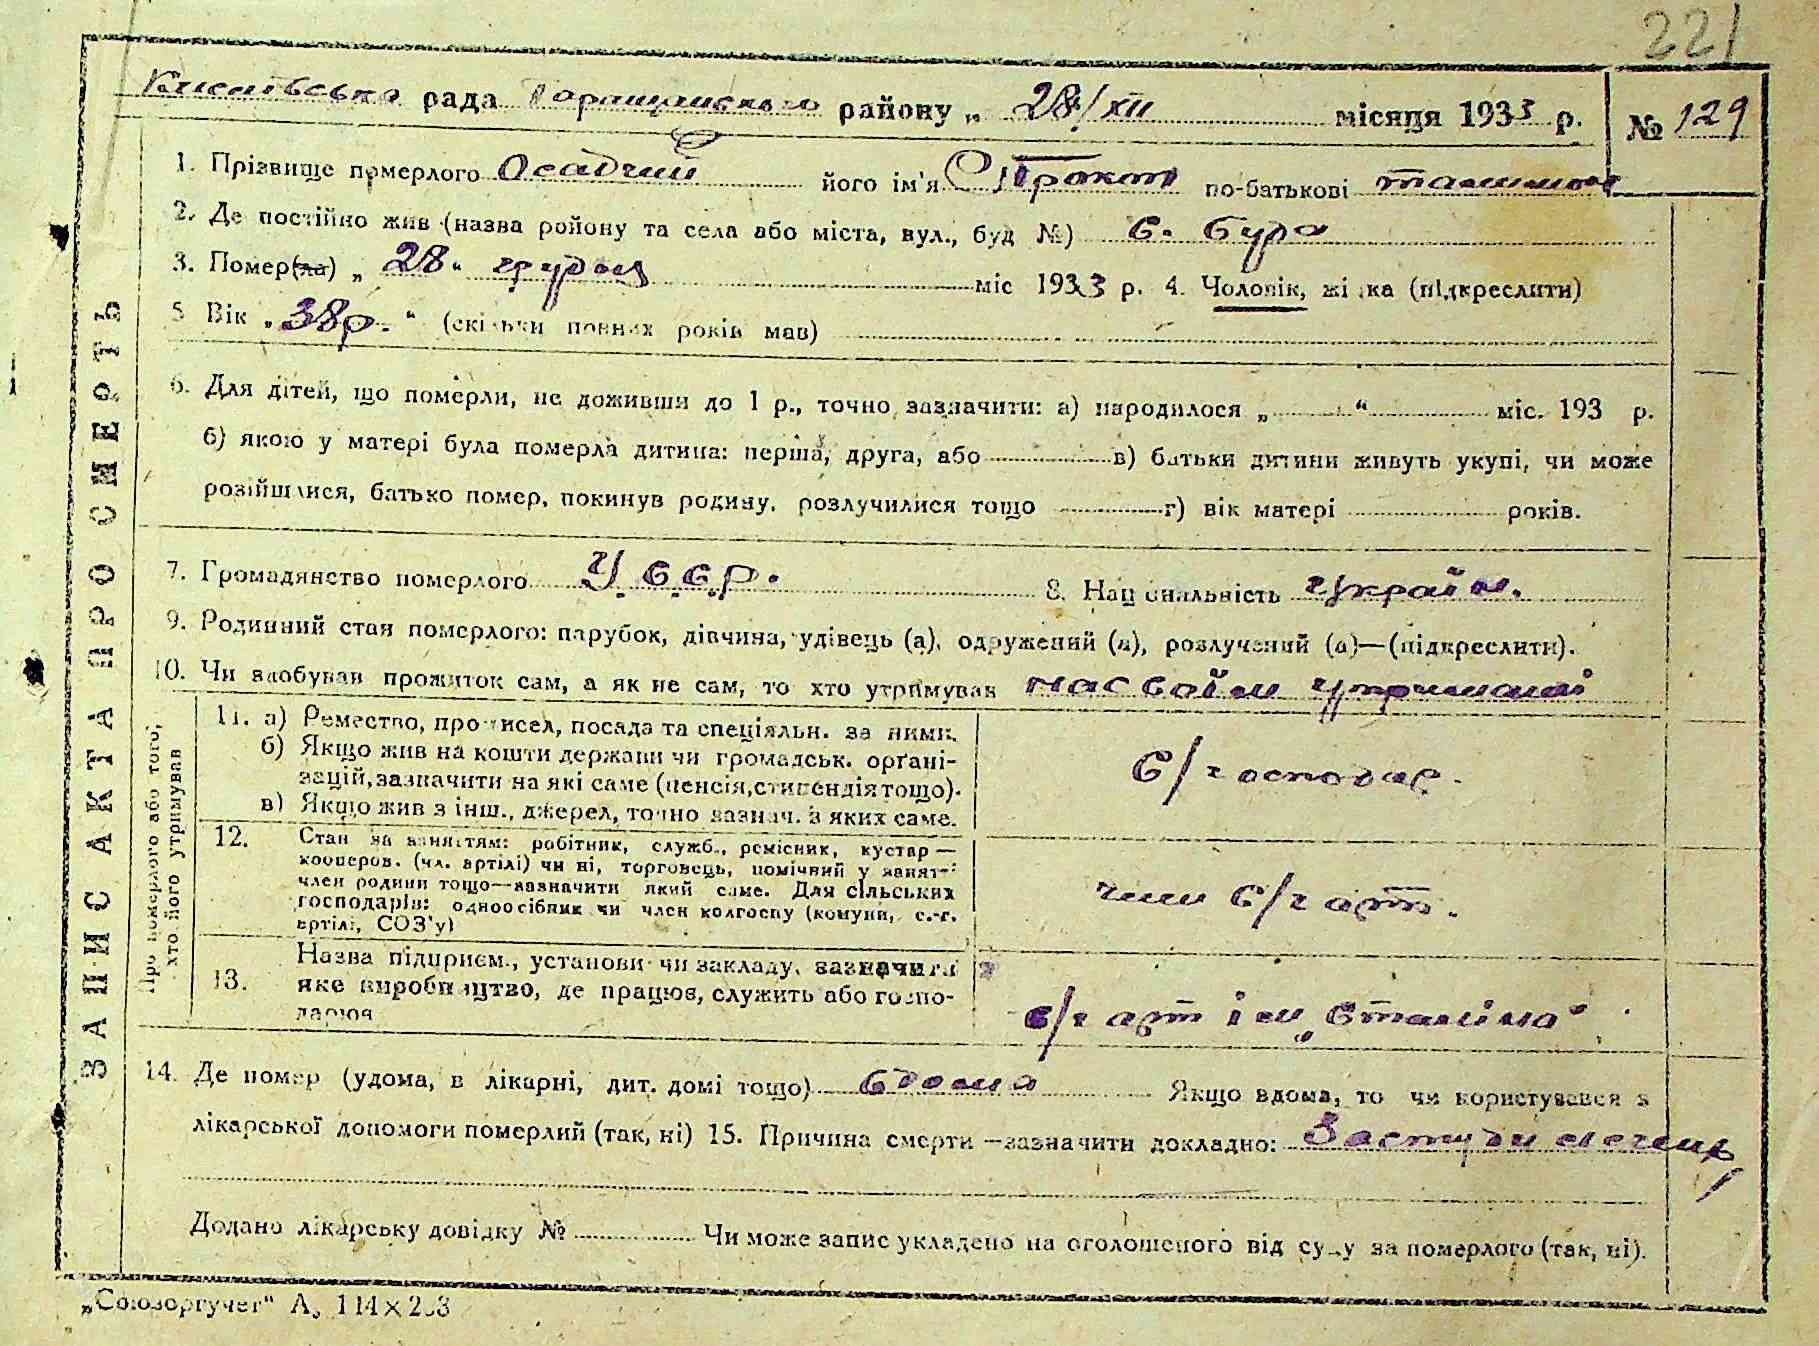 221
рада Таращанського району „ 28/XII місяця 1933 р. № 129
1. Прізвище померлого Осадчий його ім'я Прокоп по-батькові
2. Де постійно жив (назва району та села або міста, вул., буд №) с. Буда
3. Помер(ла) „ 28 " грудня міс 1933 р. 4. Чоловік, жінка (підкреслити)
5 Вік „ 38 р. " (скільки повних років мав)
6. Для дітей, що померли, не доживши до 1 р., точно зазначити: а) народилося „ " міс. 193 р.
б) якою у матері була померла дитина: перша, друга, або в) батьки дитини живуть укупі, чи може
розійшлися, батько помер, покинув родину, розлучилися тощо г) вік матері років.
7. Громадянство померлого УССР. 8. Національність україн.
9. Родинний стан померлого: парубок, дівчина, удівець (а), одружений (а), розлучений (а)—(підкреслити).
10. Чи здобував прожиток сам, а як не сам, то хто утримував на своїм утриманні
ЗАПИС АКТА ПРО СМЕРТЬ
Про померлого або того, хто його утримував
11. а) Ремество, промисел, посада та спеціяльн. за ними.
б) Якщо жив на кошти держави чи громадськ. орґані-
зацій, зазначити на які саме (пенсія, стипендія тощо).
в) Якщо жив з інш., джерел, точно зазнач. з яких саме.
с/господар.
12. Стан за заняттям: робітник, служб., ремісник, кустар—
кооперов. (чл. артілі) чи ні, торговець, помічний у занят-
член родини тощо—зазначити який саме. Для сільських
господарів: одноосібник чи член колгоспу (комуни, с.-г.
артілі, СОЗ'у)
член с/г арт.
13. Назва підприєм., установи чи закладу, зазначити
яке виробництво, де працює, служить або госпо-
дарює
с/г арт ім „Сталіна"
14. Де помер (удома, в лікарні, дит. домі тощо) вдома Якщо вдома, то чи користувався з
лікарської допомоги померлий (так, ні) 15. Причина смерти —зазначити докладно: Застуди
Додано лікарську довідку № Чи може запис укладено на оголошеного від суду за померлого (так, ні).
„Союзоргучет"